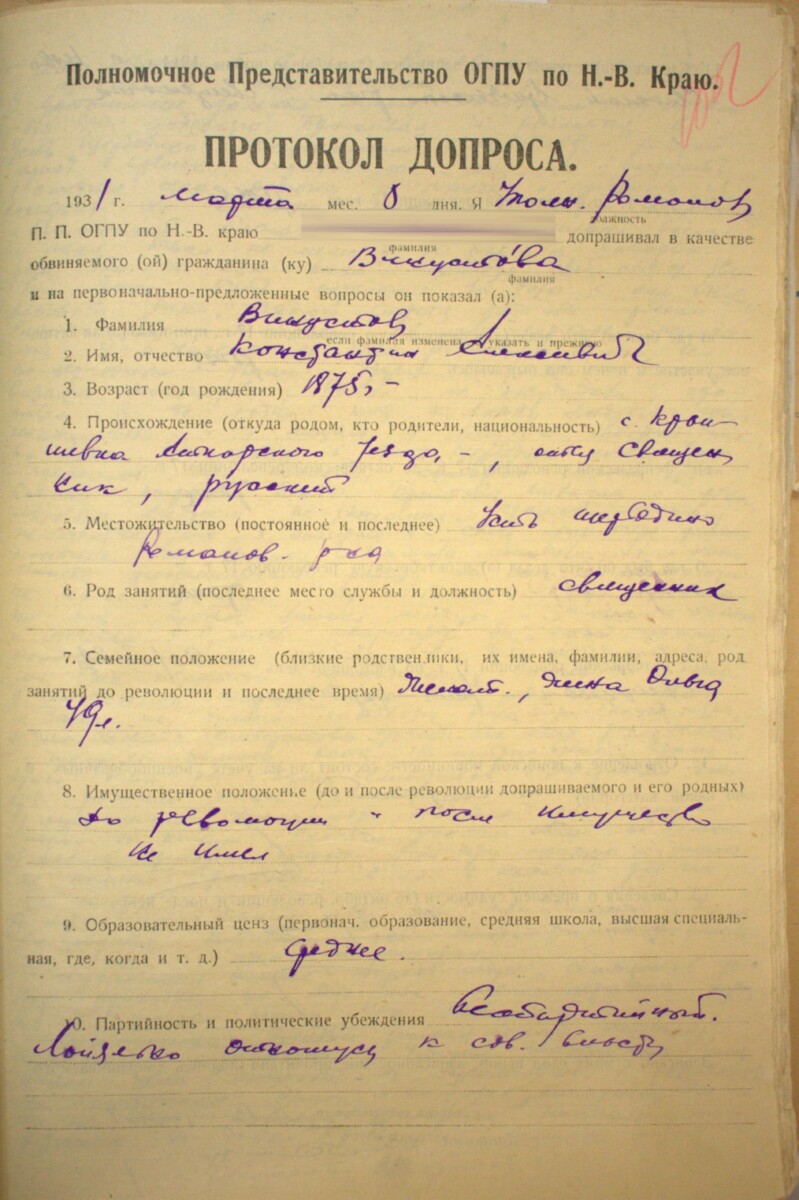 Полномочное Представительство ОГПУ по Н.-В. Краю.
ПРОТОКОЛ ДОПРОСА.
1931 г. марта мес. 8 дня. Я Уполн. Романов
должность
П. П. ОГПУ по Н.-В. краю допрашивал в качестве
фамилия
обвиняемого (ой) гражданина (ку)
фамилия
и на первоначально-предложенные вопросы он показал (а):
1. Фамилия
если фамилия изменена указать и прежнюю
2. Имя, отчество Константин
3. Возраст (год рождения) 1875 г
4. Происхождение (откуда родом, кто родители, национальность) с.
уезда, священ
ник, русский
5. Местожительство (постоянное и последнее) Усть Щербедино
Романов. р-на
6. Род занятий (последнее место службы и должность) священник
7. Семейное положение (близкие родственники, их имена, фамилии, адреса, род
занятий до революции и последнее время) женат., жена Ольга
49 л.
8. Имущественное положение (до и после революции допрашиваемого и его родных)
до революции и после имущества
не имел
9. Образовательный ценз (первонач. образование, средняя школа, высшая специаль-
ная, где, когда и т. д.) среднее.
10. Партийность и политические убеждения беспартийный.
Лояльно отношусь к сов. власти